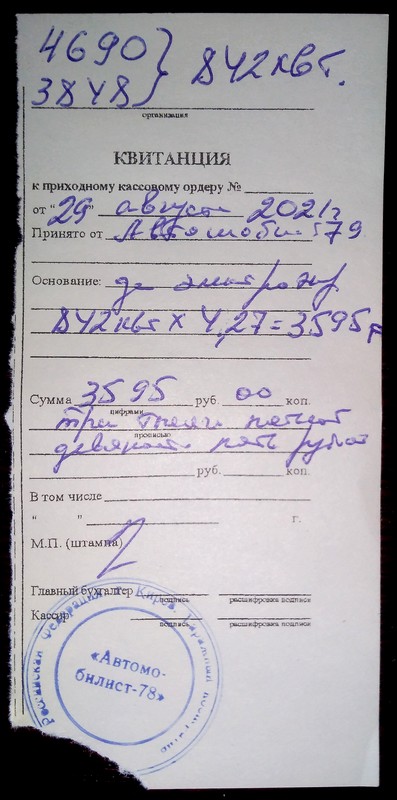 4690 } 842 квт.
3848
организация
КВИТАНЦИЯ
к приходному кассовому ордеру №
от "29" август 2021г
Принято от Автомобил 79
Основание: за электроэнер
842квт х 4,27=3595 р
Сумма 3595 руб. 00 коп.
цифрами
три тысячи пятьсот
прописью
девяносто пять рублей
руб. коп.
В том числе
" " г.
М.П. (штампа)
Главный бухгалтер
подпись расшифровка подписи
Кассир
подпись расшифровка подписи
Российская Федерация г. Киров. Гаражный кооператив
«Автомо-
билист-78»